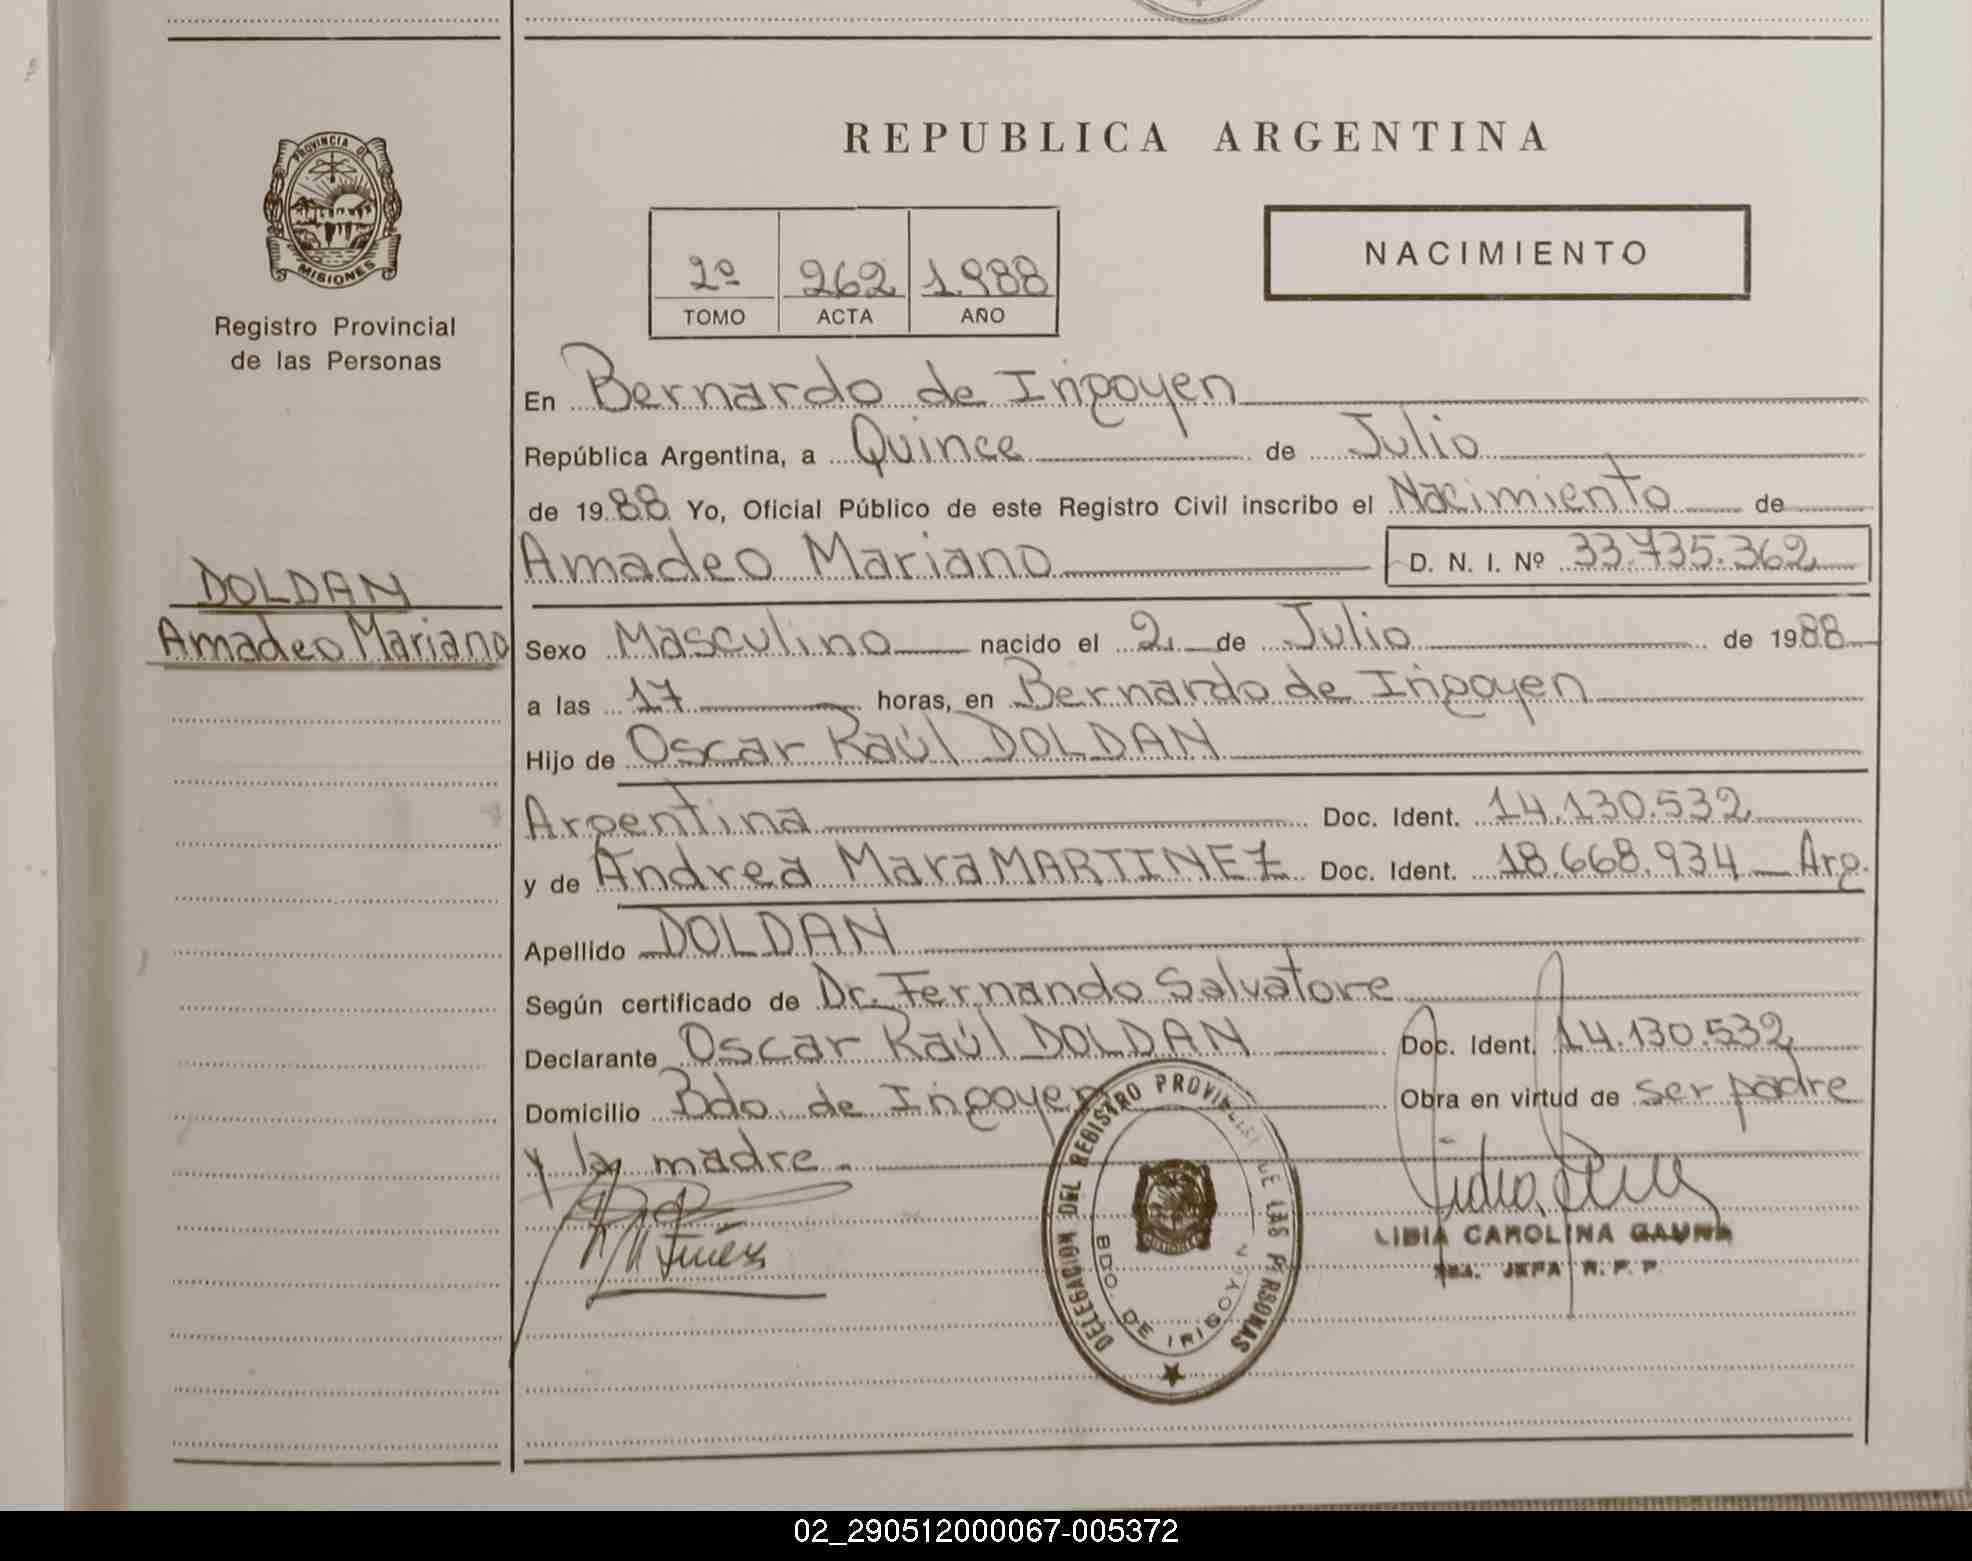 REPUBLICA ARGENTINA
PROVINCIA DE
MISIONES
Registro Provincial
de las Personas
2º 262 1.988
TOMO ACTA AÑO
NACIMIENTO
En Bernardo de Irigoyen
República Argentina, a Quince de Julio
de 1988 Yo, Oficial Público de este Registro Civil inscribo el Nacimiento de
Amadeo Mariano D. N. I. Nº 33.735.362
DOLDAN
Amadeo Mariano
Sexo Masculino nacido el 2 de Julio de 1988
a las 17 horas, en Bernardo de Irigoyen
Hijo de Oscar Raúl DOLDAN
Argentina Doc. Ident. 14.130.532
y de Andrea Mara MARTINEZ Doc. Ident. 18.668.934 Arg.
Apellido DOLDAN
Según certificado de Dr. Fernando Salvatore
Declarante Oscar Raúl DOLDAN Doc. Ident. 14.130.532
Domicilio Bdo. de Irigoyen Obra en virtud de ser padre
y la madre
DELEGACION DEL REGISTRO PROVINCIAL DE LAS PERSONAS
BDO. DE IRIGOYEN
LIBIA CAROLINA GAUNA
JEFA R. P. P.
02_290512000067-005372